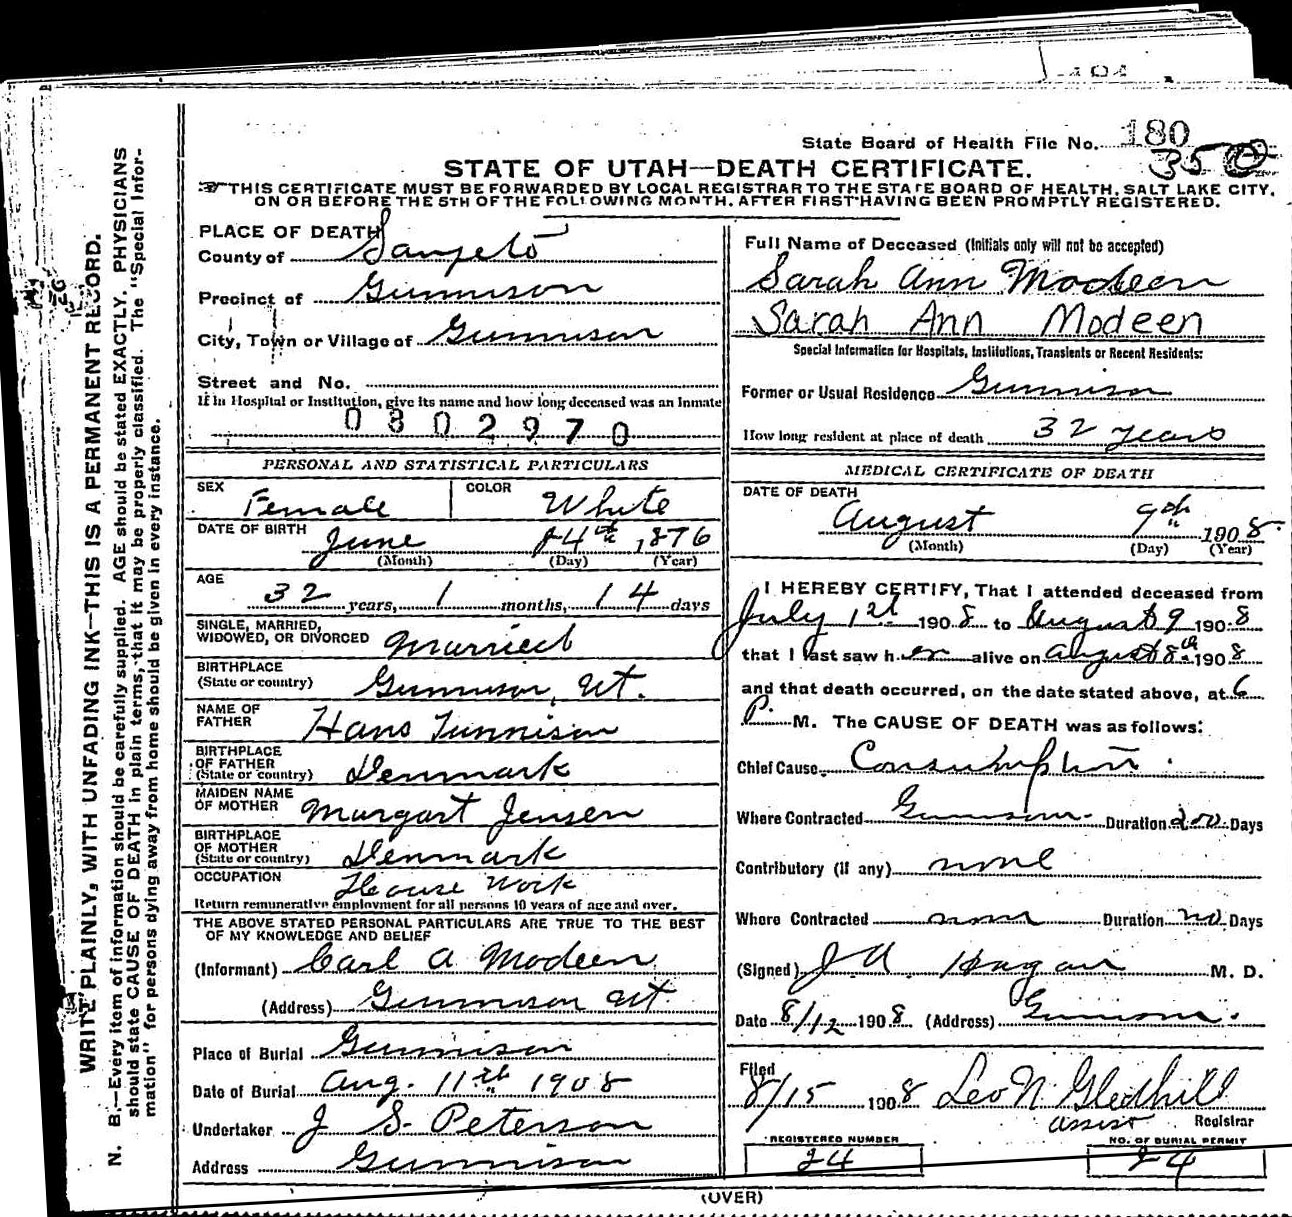 State Board of Health File No. 180
350
STATE OF UTAH—DEATH CERTIFICATE.
THIS CERTIFICATE MUST BE FORWARDED BY LOCAL REGISTRAR TO THE STATE BOARD OF HEALTH, SALT LAKE CITY,
ON OR BEFORE THE 5TH OF THE FOLLOWING MONTH, AFTER FIRST HAVING BEEN PROMPTLY REGISTERED.
WRITE PLAINLY, WITH UNFADING INK—THIS IS A PERMANENT RECORD.
N. B.—Every item of information should be carefully supplied. AGE should be stated EXACTLY. PHYSICIANS
should state CAUSE OF DEATH in plain terms, that it may be properly classified. The "Special Infor-
mation" for persons dying away from home should be given in every instance.
PLACE OF DEATH
County of Sanpete
Precinct of Gunnison
City, Town or Village of Gunnison
Street and No.
If in Hospital or Institution, give its name and how long deceased was an Inmate
0302970
PERSONAL AND STATISTICAL PARTICULARS
SEX Female COLOR White
DATE OF BIRTH June 24th, 1876
(Month) (Day) (Year)
AGE 32 years, 1 months, 14 days
SINGLE, MARRIED,
WIDOWED, OR DIVORCED Married
BIRTHPLACE
(State or country) Gunnison, Ut.
NAME OF
FATHER Hans Tunnison
BIRTHPLACE
OF FATHER
(State or country) Denmark
MAIDEN NAME
OF MOTHER Margart Jensen
BIRTHPLACE
OF MOTHER
(State or country) Denmark
OCCUPATION House Work
Return remunerative employment for all persons 10 years of age and over.
THE ABOVE STATED PERSONAL PARTICULARS ARE TRUE TO THE BEST
OF MY KNOWLEDGE AND BELIEF
(Informant) Carl A Modeen
(Address) Gunnison Ut.
Place of Burial Gunnison
Date of Burial Aug. 11th 1908
Undertaker J S. Peterson
Address Gunnison
Full Name of Deceased (Initials only will not be accepted)
Sarah Ann Modeen
Sarah Ann Modeen
Special Information for Hospitals, Institutions, Transients or Recent Residents:
Former or Usual Residence Gunnison
How long resident at place of death 32 years
MEDICAL CERTIFICATE OF DEATH
DATE OF DEATH
August 9th 1908
(Month) (Day) (Year)
I HEREBY CERTIFY, That I attended deceased from
July 1st 1908 to August 9 1908
that I last saw her alive on August 8th 1908
and that death occurred, on the date stated above, at 6
P. M. The CAUSE OF DEATH was as follows:
Chief Cause Consumption.
Where Contracted Gunnison. Duration 200 Days
Contributory (if any) none
Where Contracted none Duration no Days
(Signed) J.A. Hagan M. D.
Date 8/12 1908 (Address) Gunnison.
Filed
8/15 1908 Leo N. Gledhill
assist Registrar
REGISTERED NUMBER
24
NO. OF BURIAL PERMIT
24
(OVER)